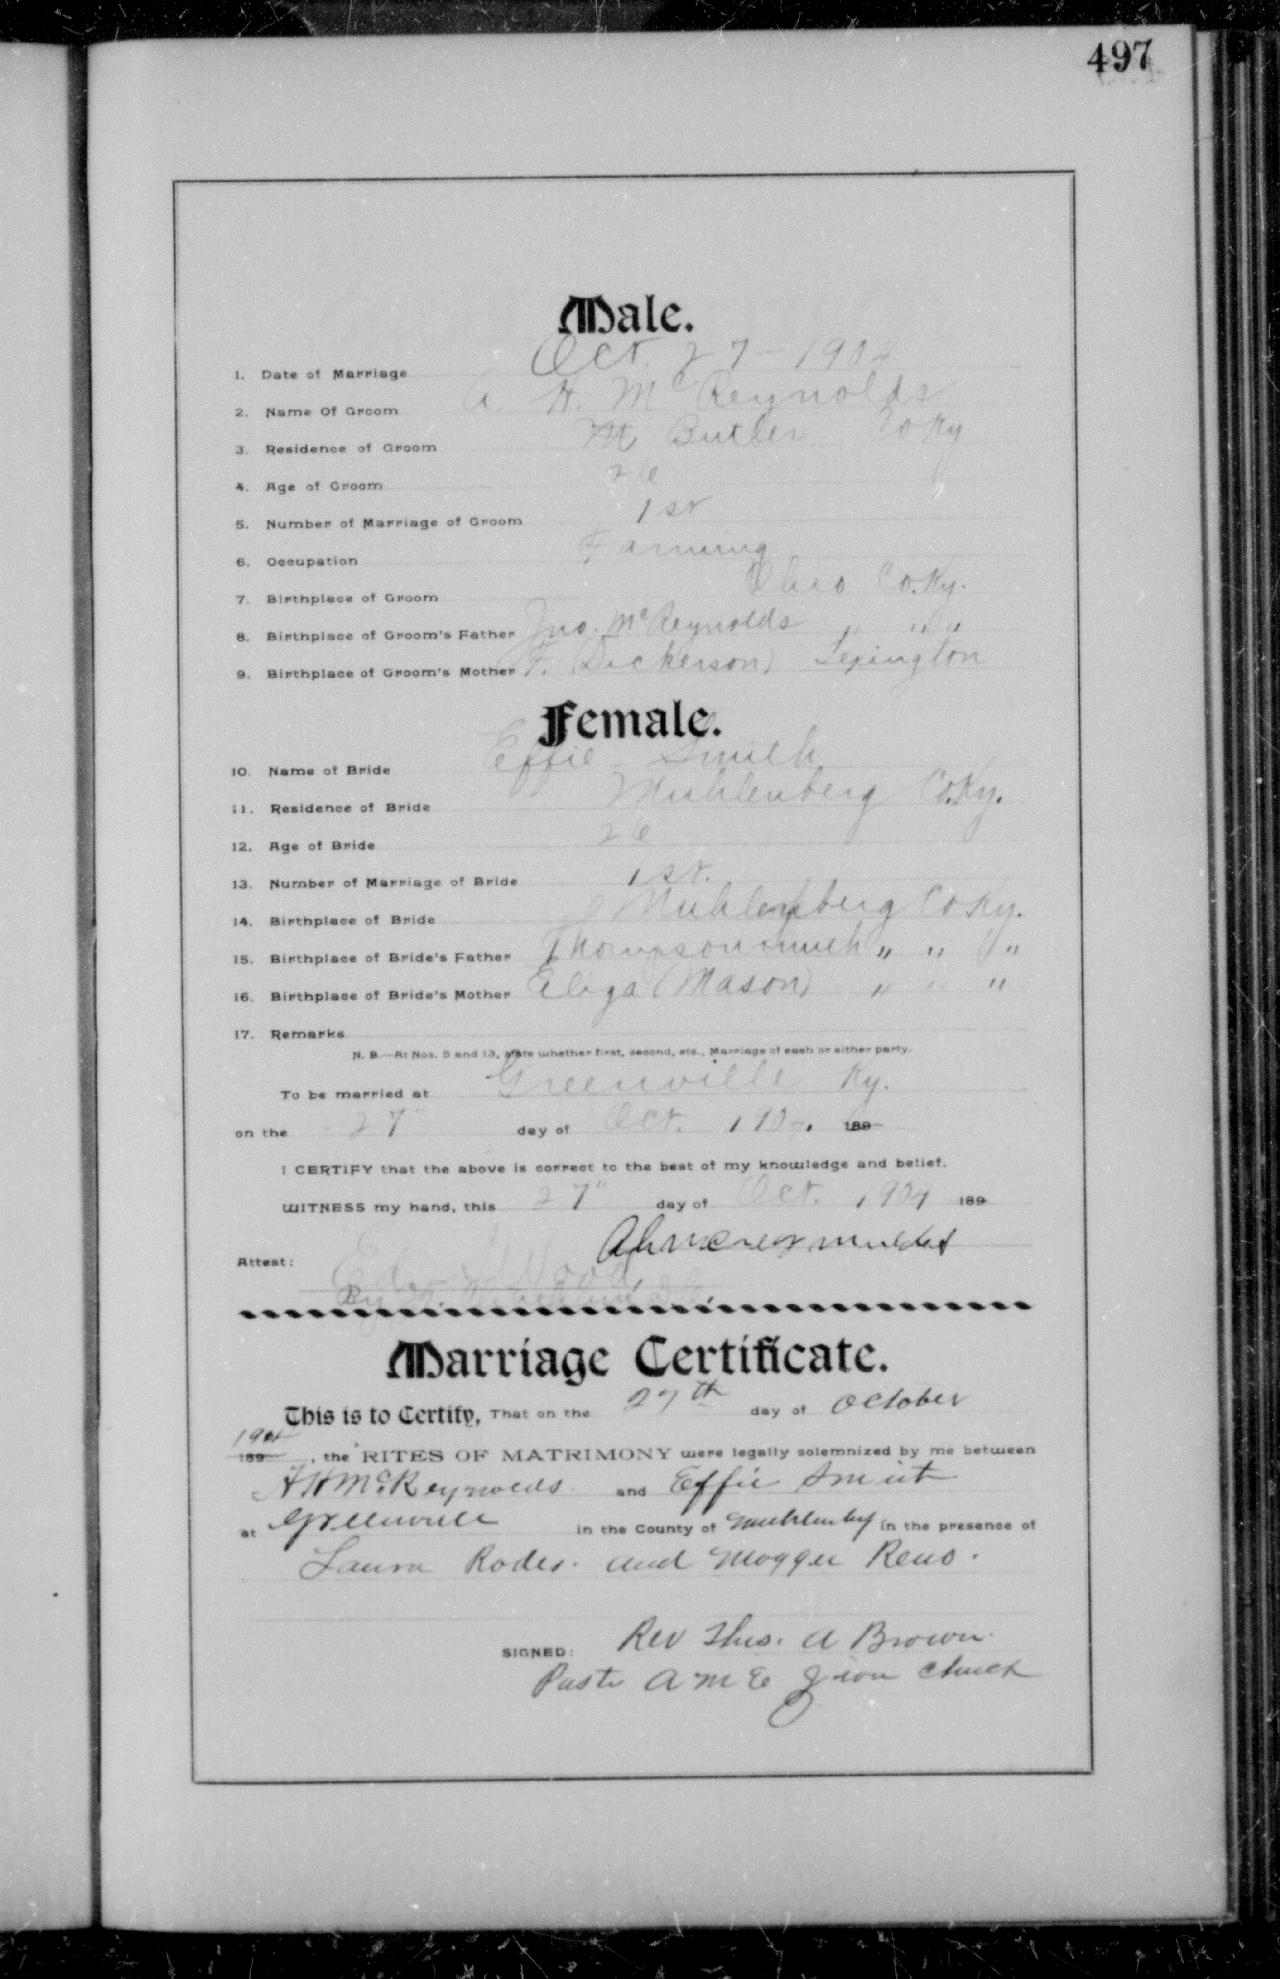 497
Male.
1. Date of Marriage Oct. 27 - 1904
2. Name Of Groom A. H. McReynolds
3. Residence of Groom Butler Co Ky
4. Age of Groom 26
5. Number of Marriage of Groom 1st
6. Occupation Farming
7. Birthplace of Groom Ohio Co. Ky.
8. Birthplace of Groom's Father Jno. McReynolds " " "
9. Birthplace of Groom's Mother F. (Dickerson) Lexington
Female.
10. Name of Bride Effie Smith
11. Residence of Bride Muhlenberg Co. Ky.
12. Age of Bride 26
13. Number of Marriage of Bride 1st.
14. Birthplace of Bride Muhlenberg Co Ky.
15. Birthplace of Bride's Father Thompson Smith " " " "
16. Birthplace of Bride's Mother Eliza (Mason) " " "
17. Remarks
N. B.—At Nos. 5 and 13, state whether first, second, etc., Marriage of each or either party.
To be married at Greenville Ky.
on the 27" day of Oct. 1904. 189
I CERTIFY that the above is correct to the best of my knowledge and belief.
WITNESS my hand, this 27" day of Oct. 1904 189
Attest:
By
Marriage Certificate.
This is to Certify, That on the 27th day of October
1904 189 , the RITES OF MATRIMONY were legally solemnized by me between
A H McReynolds and Effie Smith
at Greenville in the County of Muhlenberg in the presence of
Laura Rodes. and Moggie Reno.
SIGNED: Rev Thos. A Brown.
Pastor A M E Zion Church